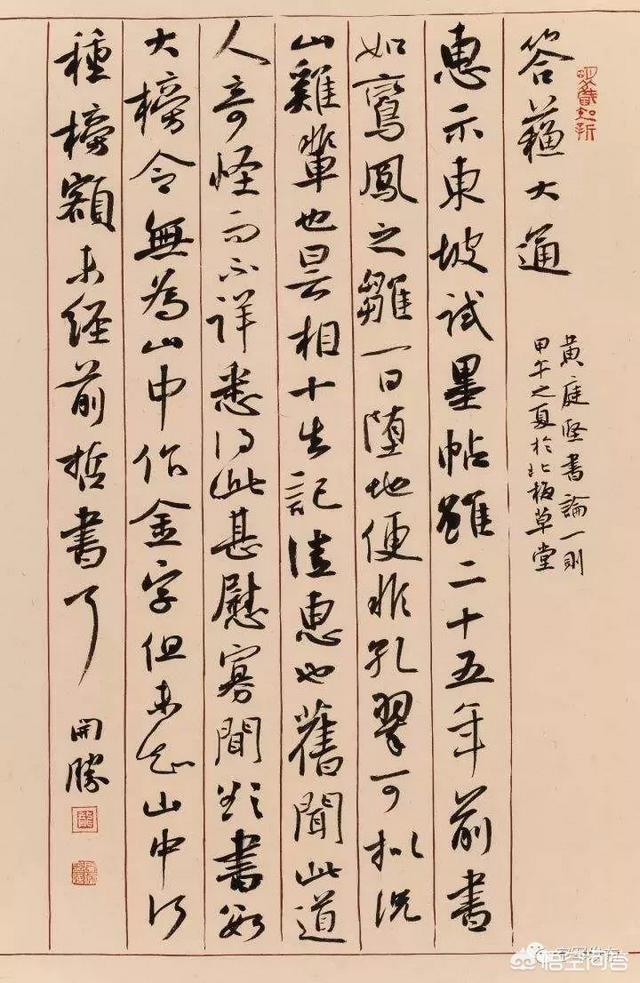 答蘓大通
黄庭堅書論一則
甲午之夏於北板草堂
惠示東坡試墨帖雖二十五年前書
如鸞鳳之雛一日墮地便非孔翠可擬況
山雞輩也曇相十生記佳惠也舊聞此道
人奇怪而不詳悉得此甚慰寡聞欲書數
大榜令無為山中作金字但未知山中何
種榜額未經前哲書了
開勝
悟空问答